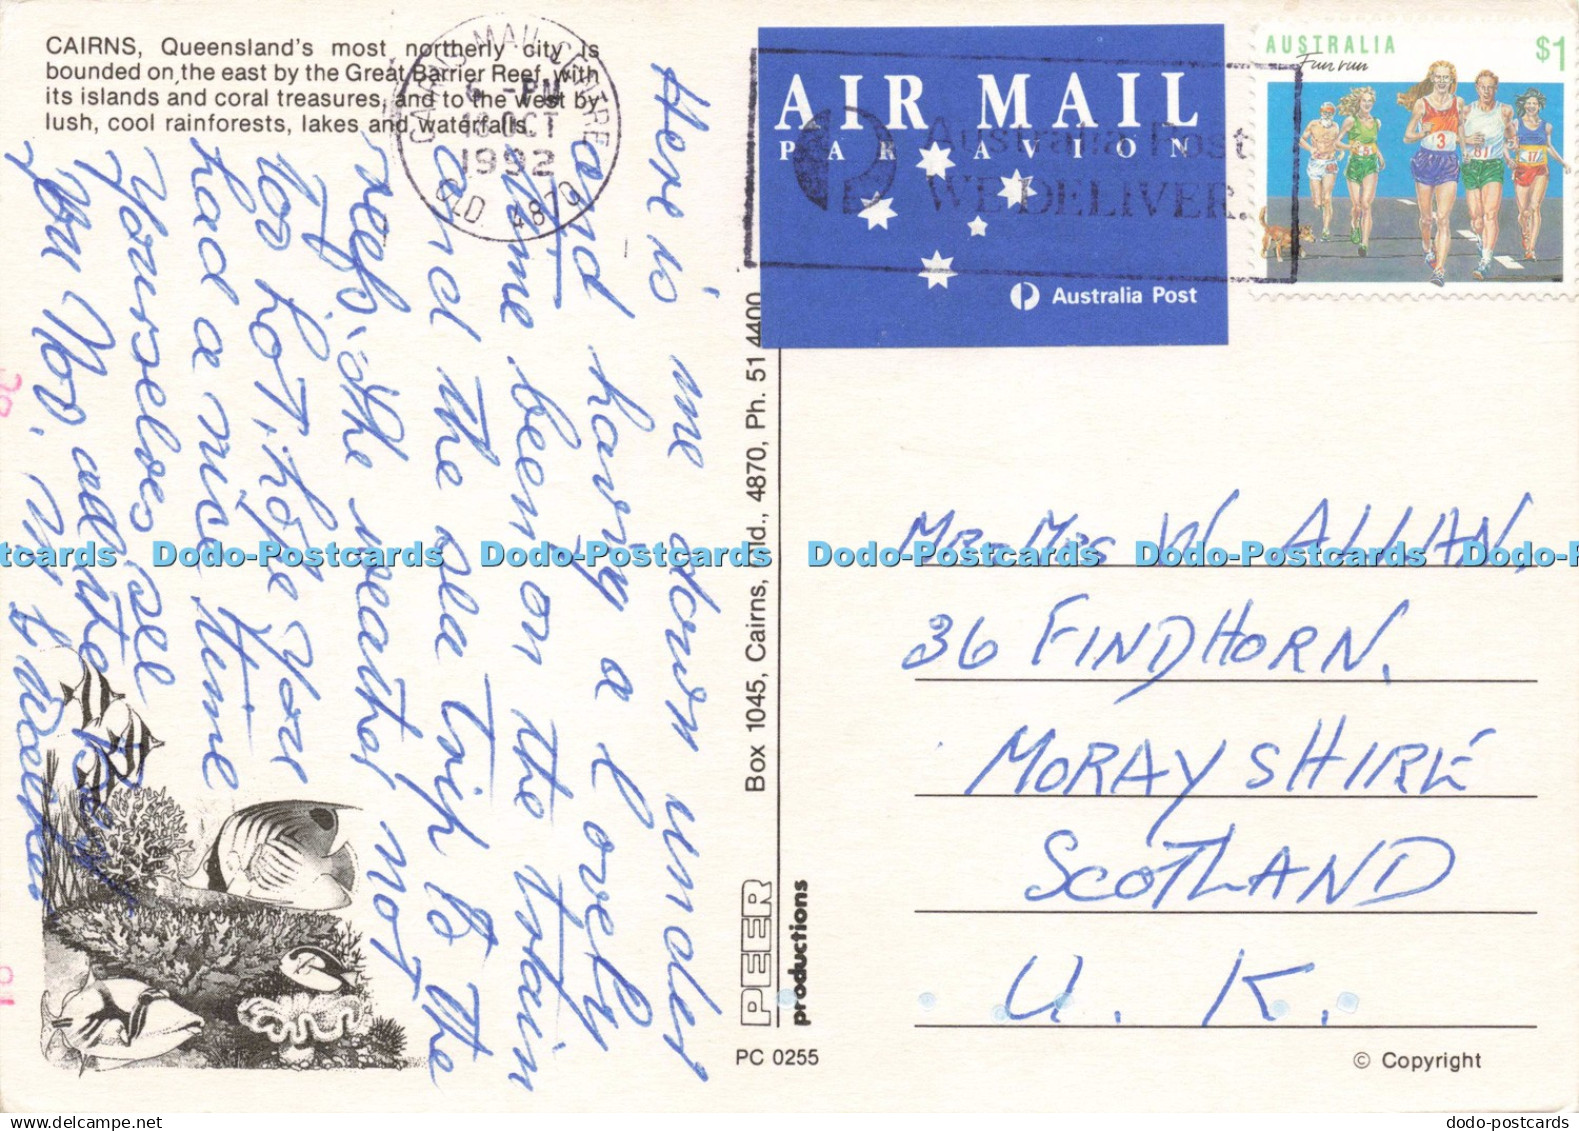 CAIRNS, Queensland's most northerly city is
bounded on the east by the Great Barrier Reef, with
its islands and coral treasures, and to the west by
lush, cool rainforests, lakes and waterfalls.
CAIRNS MAIL CENTRE
6 -PM
OCT
1992
QLD 4870
AIR MAIL
PAR AVION
Australia Post
WE DELIVER.
Australia Post
AUSTRALIA
$1
Fun run
3
81
17
Here is me down under
and having a lovely
time been on the train
and the sea trip to the
reef, the weather not
too hot, hope your
had a nice time
yourselves, see
you Nov, all the best
Box 1045, Cairns, Qld., 4870, Ph. 51 4400
PEER
productions
PC 0255
MR-MRS W ALLAN,
36 FINDHORN.
MORAYSHIRE
SCOTLAND
U. K.
© Copyright
Dodo-Postcards Dodo-Postcards Dodo-Postcards Dodo-Postcards
dodo-postcards.com